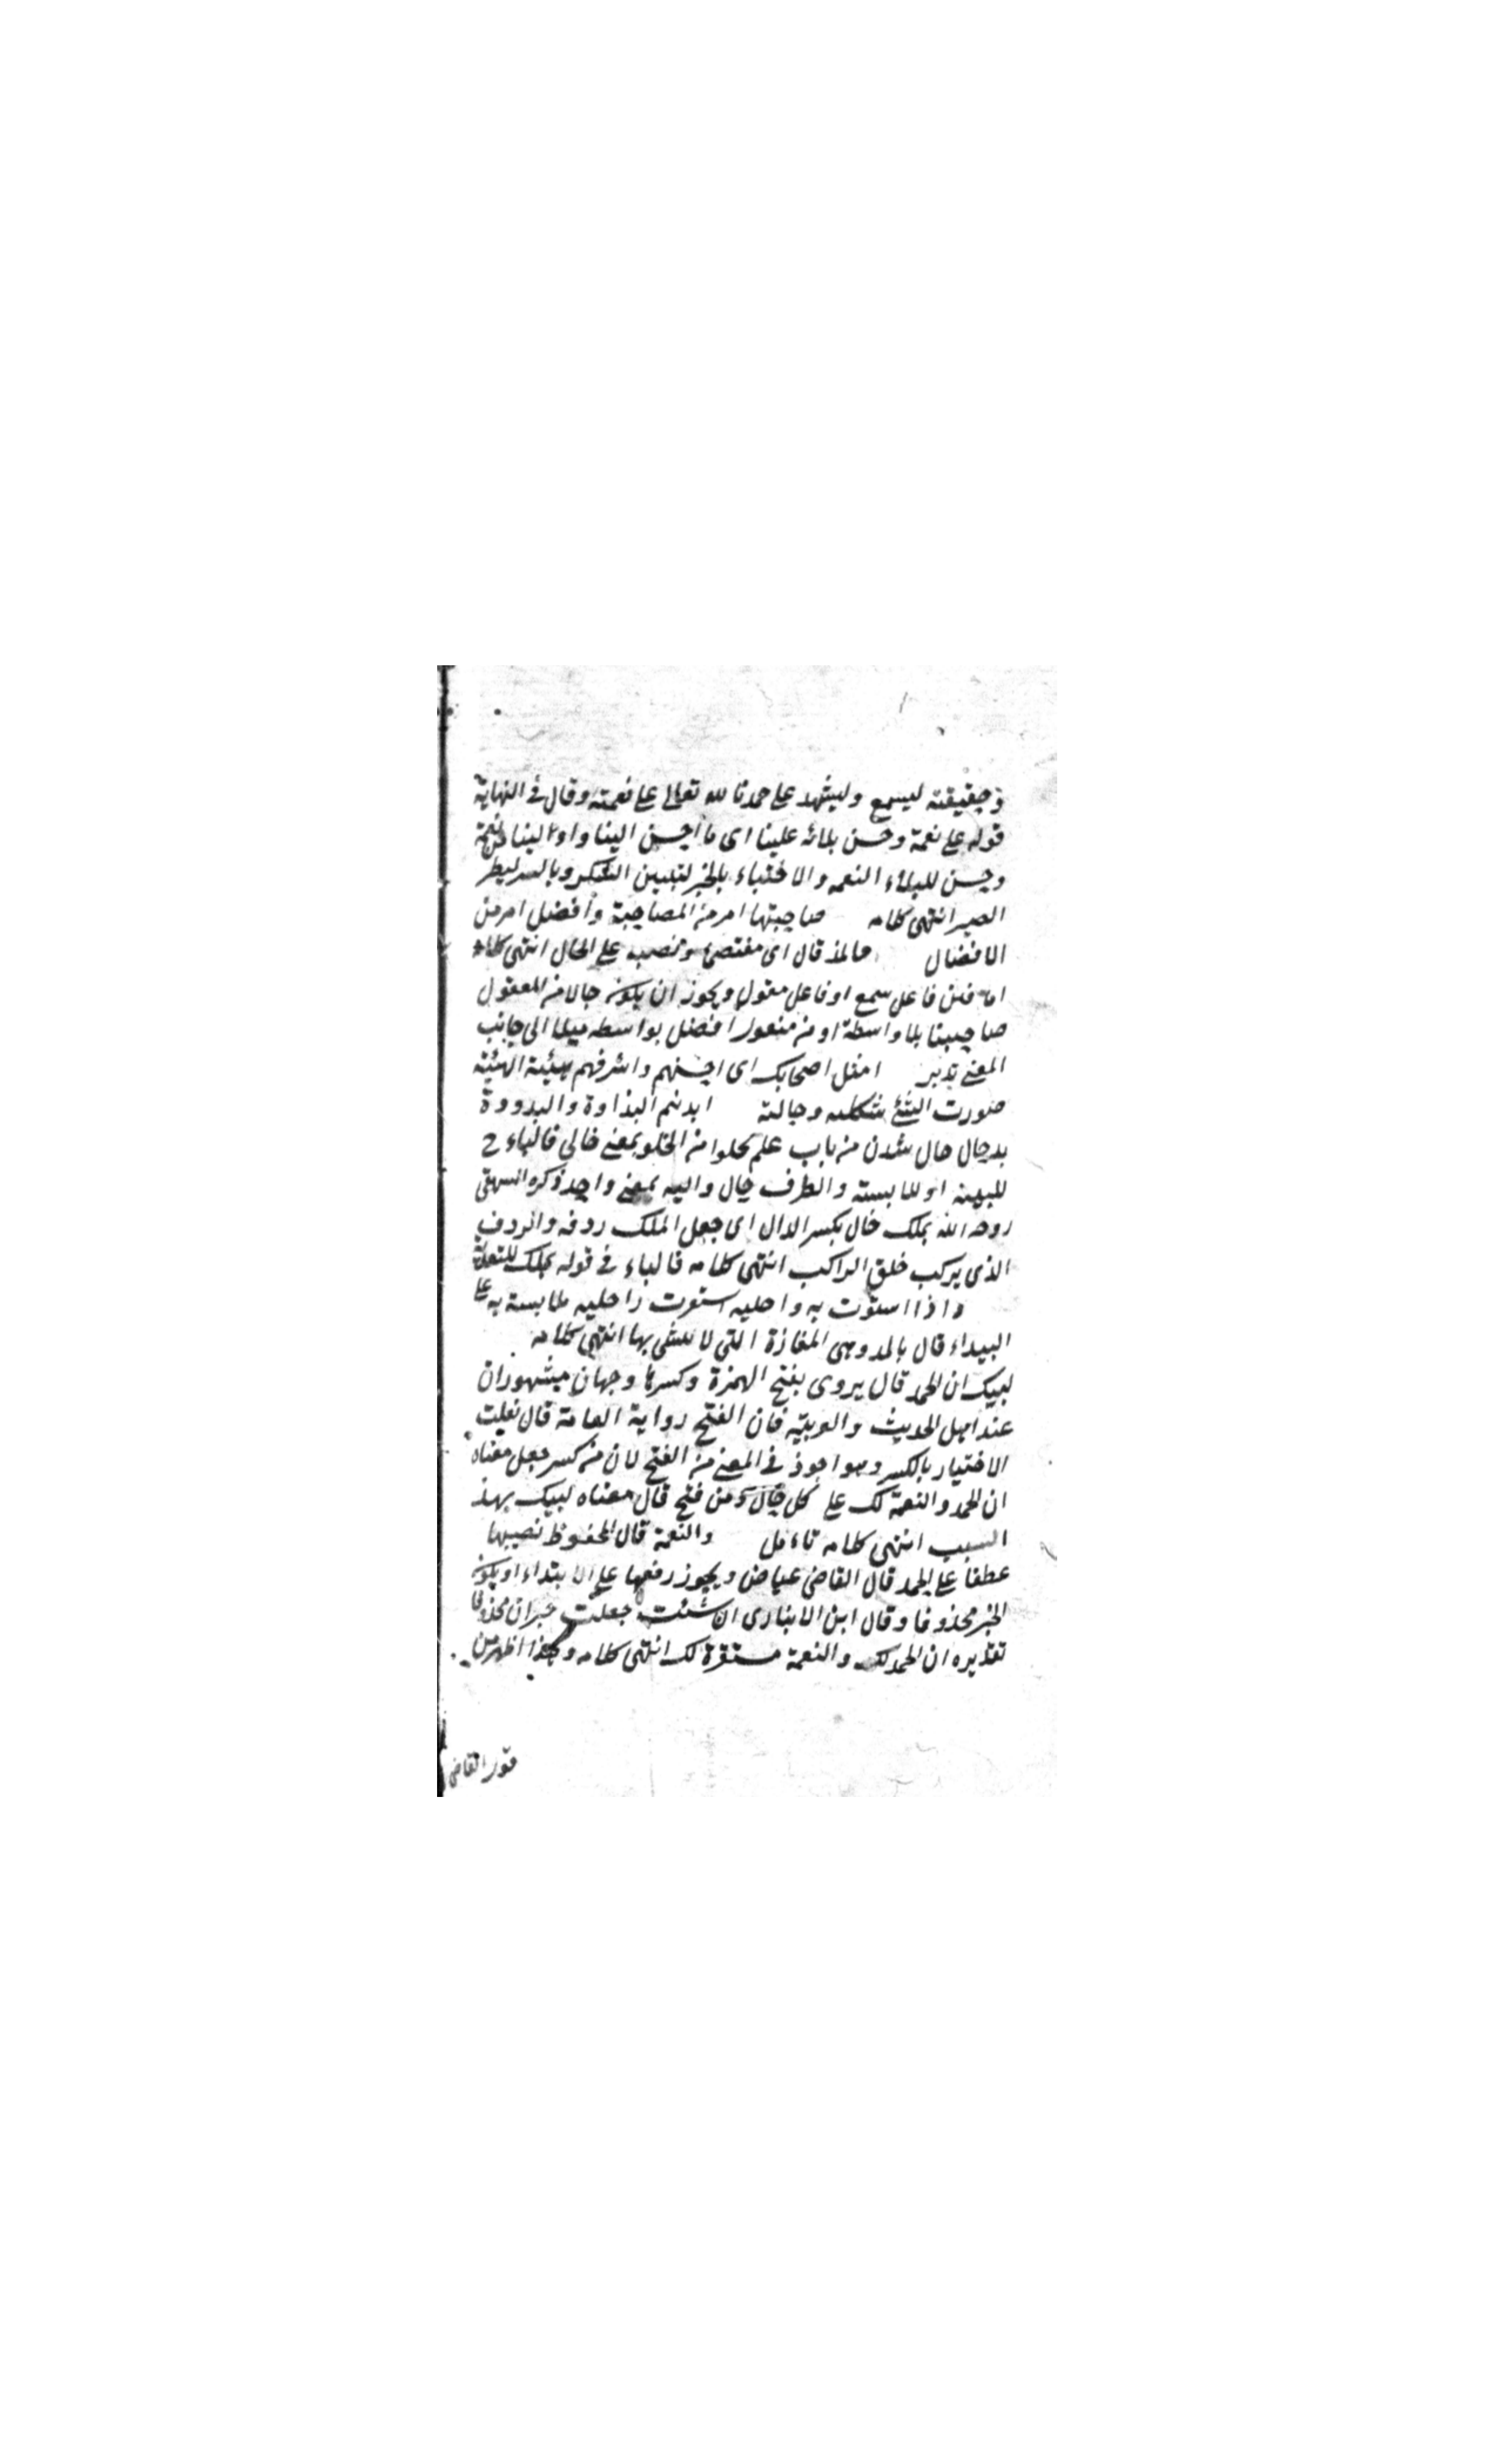 وحقيقته ليسمع وليشهد على حمدنا لله تعالى على نعمته وقال فى النهاية
قوله على نعمة وحسن بلائه علينا اى ما احسن الينا واولينا من نعمة
وحسن البلاء النعمه والاختباء بالخير لتبيين الشكر وبالسر ليظر
الصبر انتهى كلامه صاحبتها امر من المصاحبة وافضل امر من
الافضال قال اى وتنصب على الحال انتهى كلامه
فاعل سمع او فاعل مقول ويجوز ان يكون حالا من المفعول
صاحبنا بلا واسطة او من مفعول افضل بواسطه ميلا الى جانب
المعنى تدبر امثل اصحابك اى احسنهم واشرفهم هيئة الهيئة
صورت الشئ شكله وحالته ابدنهم البذاوة والبدوودة
بدحال حال شدن من باب علم يخلوا من الخلو بمعنى خالى فالباء ح
او للملابسته والظرف حال واليه بمعنى واحد ذكره البيهقى
روحه الله بملك خال بكسر الدال اى جعل الملك ردفه والردف
الذى يركب خلق الراكب انتهى كلامه فالباء فى قوله بملك للتعدية
واذا استوت به واحليه استوت راحليه ملابسة به على
البيداء قال بالمد وهى المفازة التى لا شى بها انتهى كلامه
لبيك ان الحمد قال يروى بفتح الهمزة وكسرها وجهان مشهوران
عند اهل الحديث والعربية فان الفتح رواية العامة قال تعلب
الاختيار بالكسر وهو اجود فى المعنى من الفتح لان من كسر جعل معناه
ان الحمد والنعمة لك على كل حال ومن فتح قال معناه لبيك بهذ
السبب انتهى كلامه تاءمل والنعمة قال المحفوظ نصبها
عطفا على الحمد قال القاضى عياض ويجوز رفعها على الابتداء او يكون
الخبر محذوفا وقال ابن الانبارى ان شئت جعلت خبر ان محذوفا
تقديره ان الحمد لك والنعمة مستقرة لك انتهى كلامه وهذا اظهر من
قول القاضى